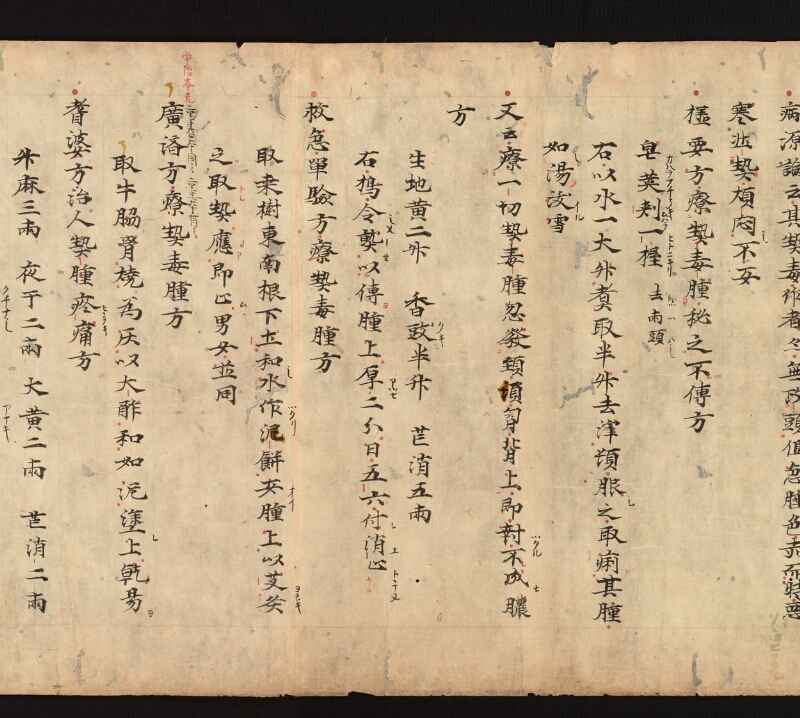 病源論云其熱毒作者々無陊頭但急腫色赤而特惡
寒壯熱煩悶不安
極要方療熱毒腫秘之不傳方
皂莢刾一握 去兩頭
右以水一大升煮取半升去滓頓服之取痢其腫
如湯沃雪
又云療一切熱毒腫忽發頸項胷背上即封不成膿
方
生地黄二升 香豉半升 芒消五兩
右擣令𤍠以傅腫上厚二分日五六付消止
救急單驗方療熱毒腫方
取桒樹東南根下土和水作泥餅安腫上以艾灸
之取熱應即止男女並同
廣濟方療熱毒腫方
取牛脇骨燒為灰以大酢和如泥塗上乾易
耆婆方治人熱腫疼痛方
升麻三兩 夜干二兩 大黄二兩 芒消二兩